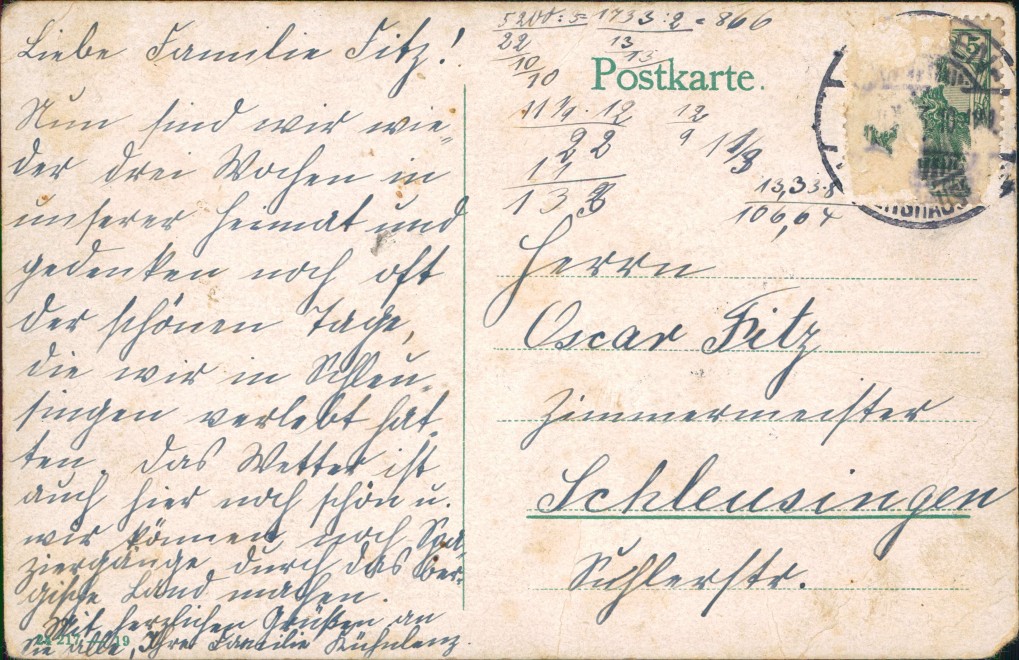 Liebe Familie Fitz!
Nun sind wir wie-
der drei Wochen in
unserer Heimat und
gedenken noch oft
der schönen Tage,
die wir in Schleu-
singen verlebt hat-
ten. Das Wetter ist
auch hier noch schön u.
wir können noch Spa-
ziergänge durch das ber-
gische Land machen.
Mit herzlichen Grüßen an
Sie alle, Ihre Familie Kühnlenz.
5200:5=1733:2=866
22 13
10 13
10
Postkarte.
11 1/9 . 12 12
22 9 11/3
12
13 13,33.8
106,64
5
Herrn
Oscar Fitz
Zimmermeister
Schleusingen
Suhlerstr.